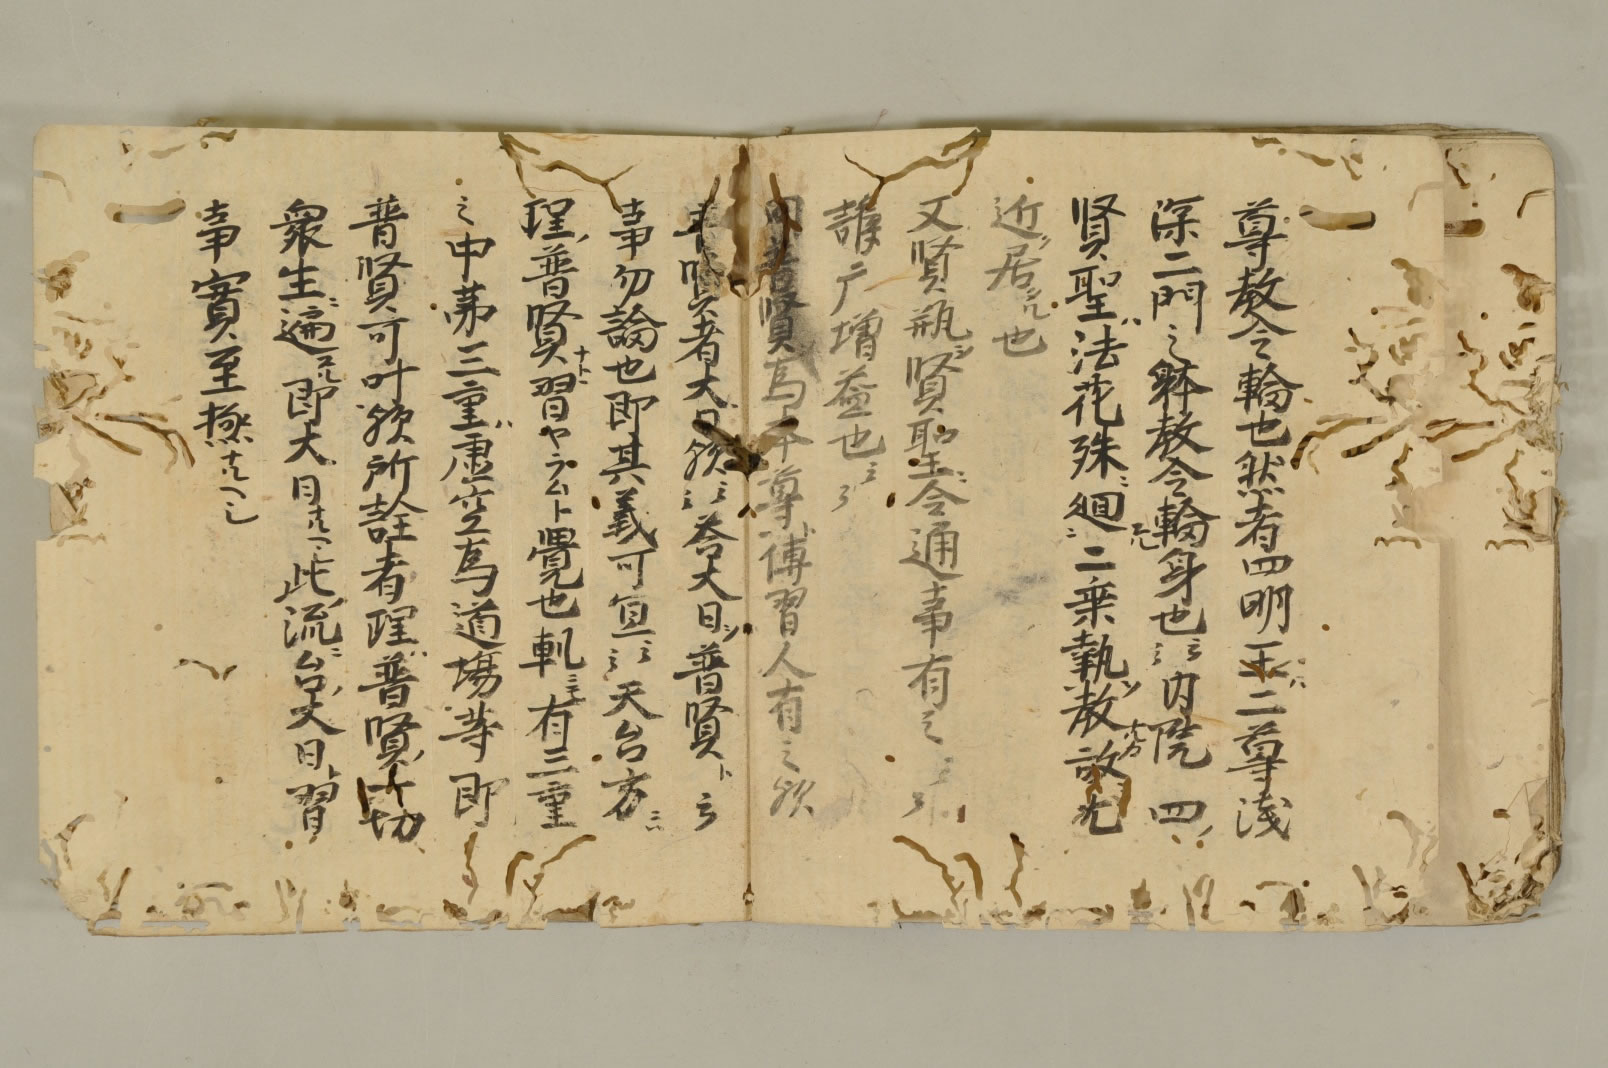 尊教令輪也然者四明王二尊浅
深二門之躰教令輪身也云云内院四
賢聖法花殊廻二乗執教故尤
近居也
又賢瓶賢聖令通事有之云云
護广増益也云云
用普賢為本尊傳習人有之欤
普賢者大日欤云云答大日普賢ト云
事勿論也即其義可宜云云天台方
理普賢習ヤラムト覺也軌有三重
之中苐三重虚空為道場等即
普賢可叶欤所詮者理普賢一切
衆生遍即大日此流台大日習
事實至極ナルヘシ